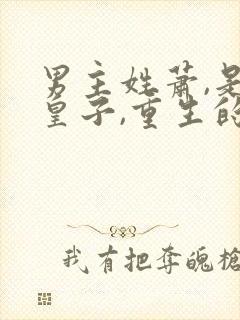 男主姓萧,是
皇子,重生的
我有把夺魄枪